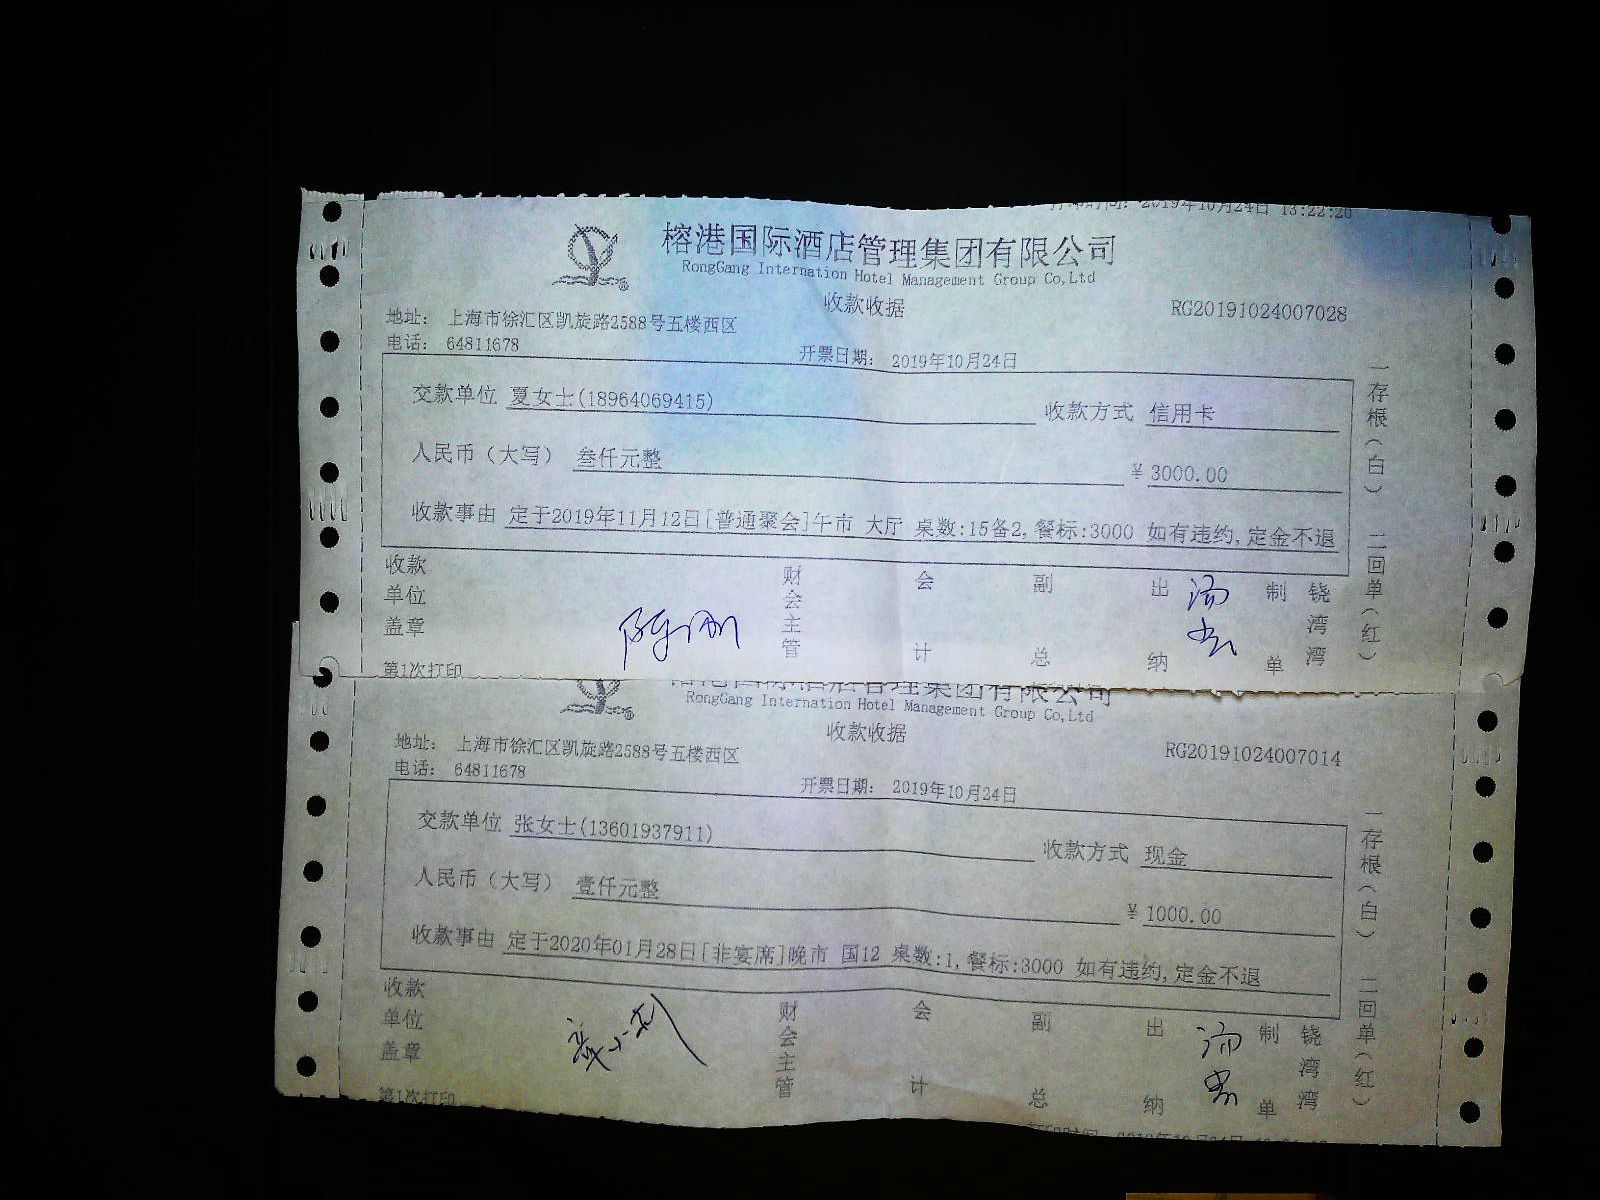 打印时间: 2019年10月24日 13:22:20
榕港国际酒店管理集团有限公司
RongGang Internation Hotel Management Group Co,Ltd
收款收据
RG20191024007028
地址: 上海市徐汇区凯旋路2588号五楼西区
电话: 64811678
开票日期: 2019年10月24日
交款单位 夏女士(18964069415)
收款方式 信用卡
人民币(大写) 叁仟元整
¥3000.00
收款事由 定于2019年11月12日[普通聚会]午市 大厅 桌数:15备2,餐标:3000 如有违约,定金不退
一存根(白) 二回单(红)
收款单位盖章
财会主管
会计
副总
出纳
制单
铙湾湾
第1次打印
榕港国际酒店管理集团有限公司
RongGang Internation Hotel Management Group Co,Ltd
收款收据
RG20191024007014
地址: 上海市徐汇区凯旋路2588号五楼西区
电话: 64811678
开票日期: 2019年10月24日
交款单位 张女士(13601937911)
收款方式 现金
人民币(大写) 壹仟元整
¥1000.00
收款事由 定于2020年01月28日[非宴席]晚市 国12 桌数:1,餐标:3000 如有违约,定金不退
一存根(白) 二回单(红)
收款单位盖章
财会主管
会计
副总
出纳
制单
铙湾湾
第1次打印